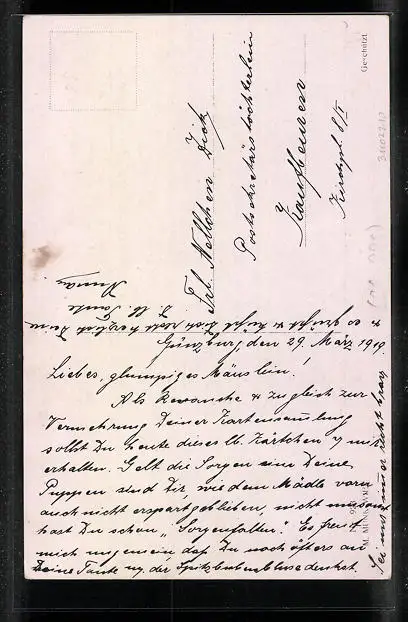 Geschützt
Frl. Nellchen Dick
Postsekretärstöchterlein
Kaufbeuren
Kirchpl. 8/I
Günzburg, den 29. März 1919.
Liebes, glumpiges Mäuslein!
Als Revanche & zugleich zur
Vermehrung Deiner Kartensammlung
sollst Du heute dieses lb. Kärtchen v. mir
erhalten. Gelt die Sorgen um Deine
Puppen sind Dir, wie dem Mädle vorn
auch nicht erspart geblieben, nicht umsonst
hast Du schon "Sorgenfalten". Es freut
mich ungemein daß Du noch öfters an
Deine Tante mit der Spitzbubenbluse denkst.
Sei nur immer recht brav
& es grüßt & küßt Dich recht herzlich Deine
D. lb. Tante
M. MUNK